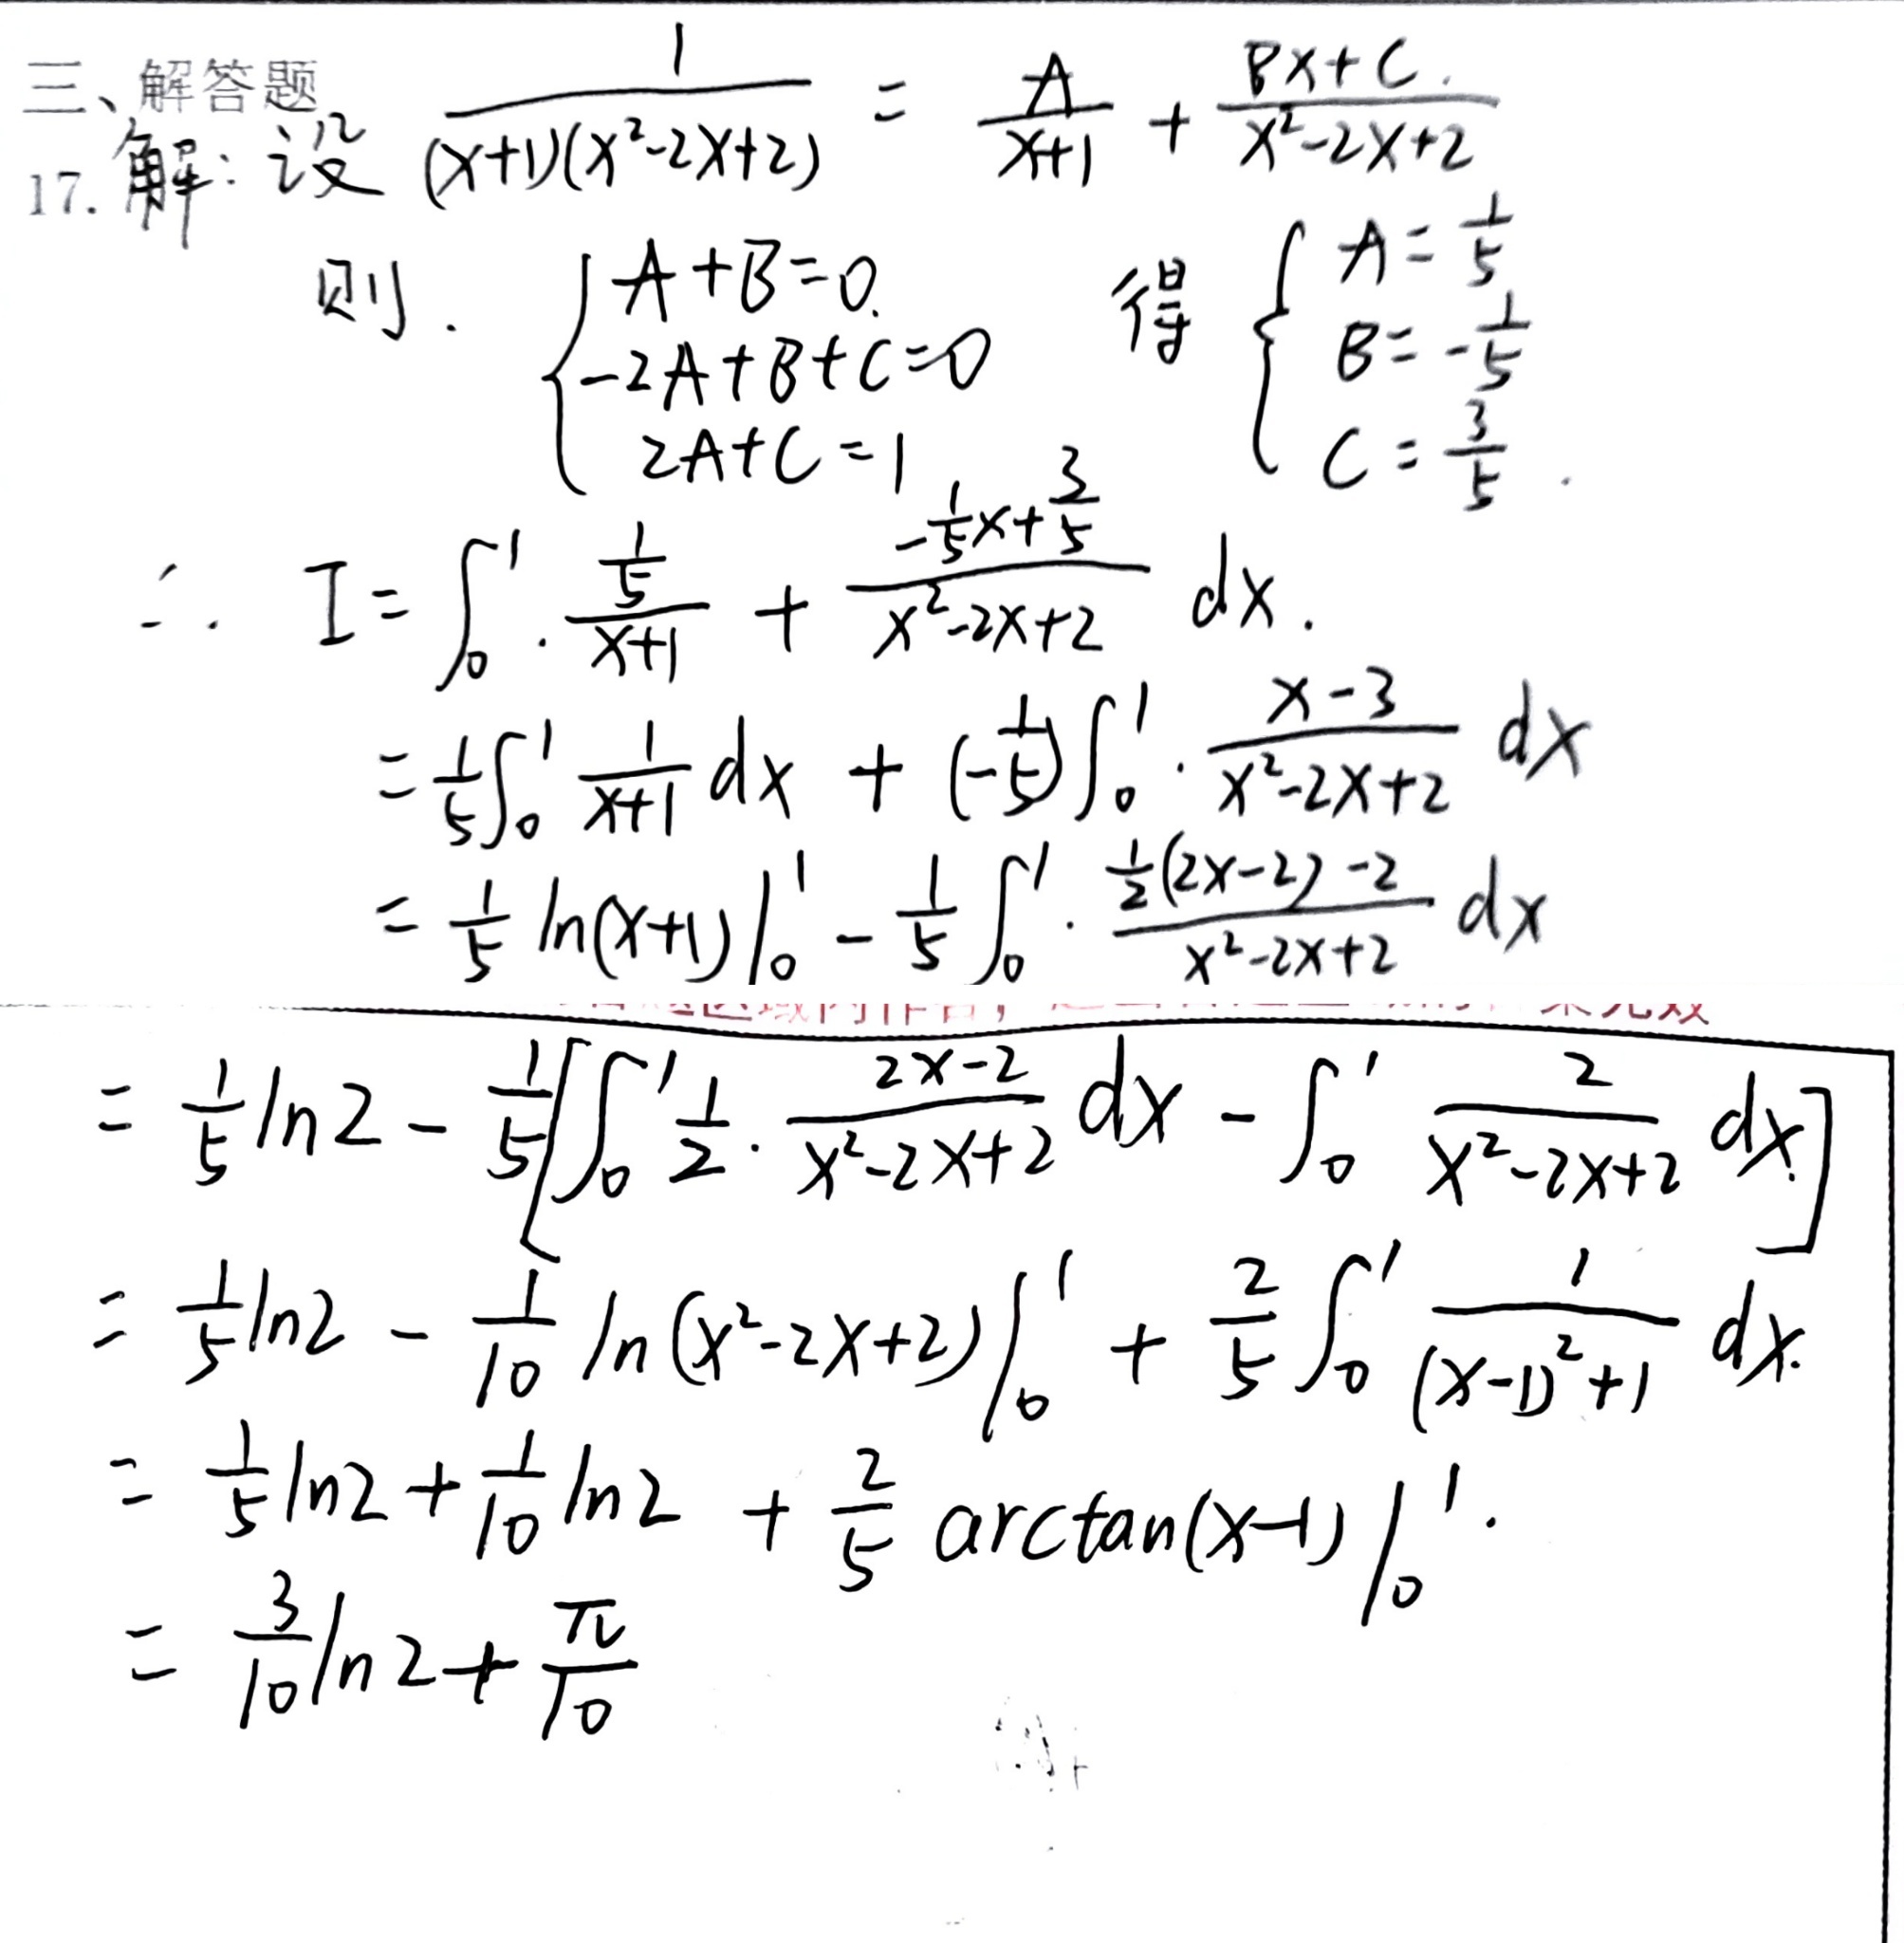 三、解答题
17. 解: 设 1/((x+1)(x²-2x+2)) = A/(x+1) + (Bx+C)/(x²-2x+2)
则. { A+B=0. -2A+B+C=0 2A+C=1 得 { A=1/5 B=-1/5 C=3/5.
∴ I=∫₀¹ (1/5)/(x+1) + (-1/5x+3/5)/(x²-2x+2) dx.
= 1/5∫₀¹ 1/(x+1) dx + (-1/5)∫₀¹ (x-3)/(x²-2x+2) dx
= 1/5 ln(x+1)|₀¹ - 1/5∫₀¹ (1/2(2x-2)-2)/(x²-2x+2) dx
= 1/5 ln2 - 1/5[∫₀¹ 1/2·(2x-2)/(x²-2x+2) dx - ∫₀¹ 2/(x²-2x+2) dx]
= 1/5 ln2 - 1/10 ln(x²-2x+2)|₀¹ + 2/5∫₀¹ 1/((x-1)²+1) dx.
= 1/5 ln2 + 1/10 ln2 + 2/5 arctan(x-1)|₀¹.
= 3/10 ln2 + π/10